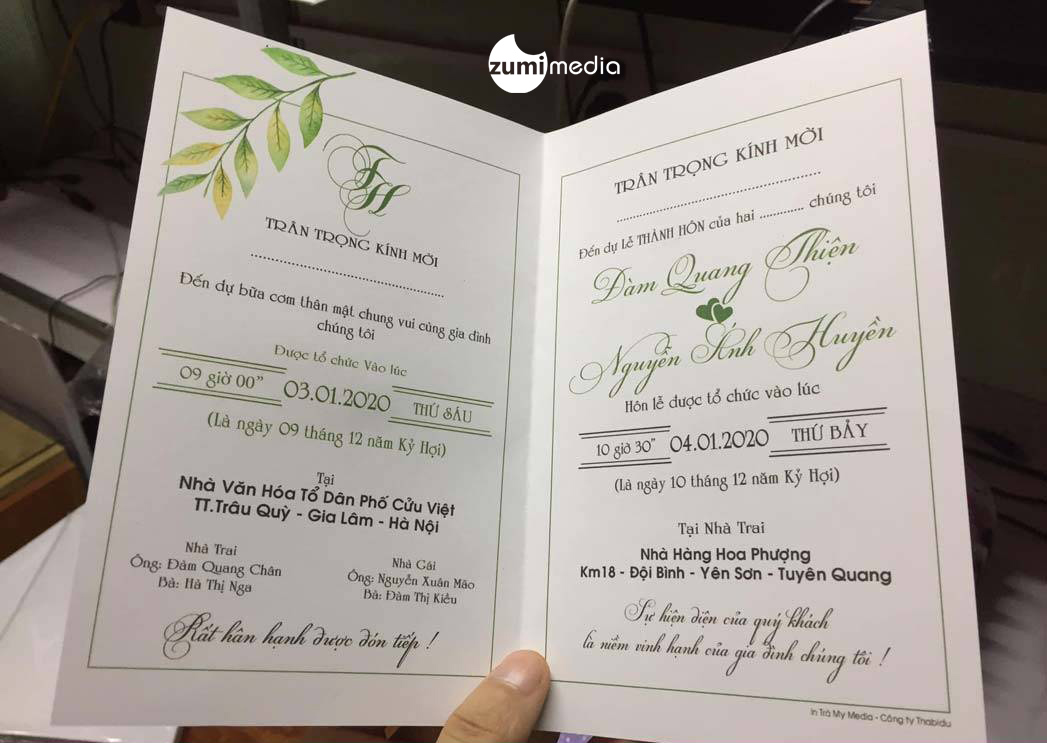 zumimedia
TH
TRÂN TRỌNG KÍNH MỜI
........................................
Đến dự bữa cơm thân mật chung vui cùng gia đình
chúng tôi
Được tổ chức Vào lúc
09 giờ 00" 03.01.2020 THỨ SÁU
(Là ngày 09 tháng 12 năm Kỷ Hợi)
Tại
Nhà Văn Hóa Tổ Dân Phố Cửu Việt
TT.Trâu Quỳ - Gia Lâm - Hà Nội
Nhà Trai
Ông: Đàm Quang Chấn
Bà: Hà Thị Nga
Nhà Gái
Ông: Nguyễn Xuân Mão
Bà: Đàm Thị Kiều
Rất hân hạnh được đón tiếp !
TRÂN TRỌNG KÍNH MỜI
........................................
Đến dự Lễ THÀNH HÔN của hai ............ chúng tôi
Đàm Quang Thiện
Nguyễn Ánh Huyền
Hôn lễ được tổ chức vào lúc
10 giờ 30" 04.01.2020 THỨ BẢY
(Là ngày 10 tháng 12 năm Kỷ Hợi)
Tại Nhà Trai
Nhà Hàng Hoa Phượng
Km18 - Đội Bình - Yên Sơn - Tuyên Quang
Sự hiện diện của quý khách
là niềm vinh hạnh của gia đình chúng tôi !
In Trà My Media - Công ty Thabidu